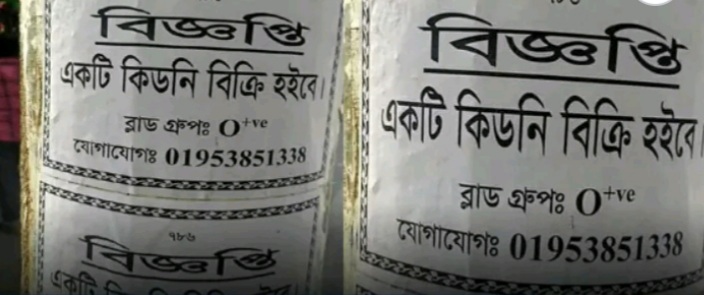 বিজ্ঞপ্তি
একটি কিডনি বিক্রি হইবে।
ব্লাড গ্রুপঃ O+ve
যোগাযোগঃ 01953851338
৭৮৬
বিজ্ঞপ্তি
একটি কিডনি বিক্রি হইবে।
বিজ্ঞপ্তি
একটি কিডনি বিক্রি হইবে।
ব্লাড গ্রুপঃ O+ve
যোগাযোগঃ 01953851338